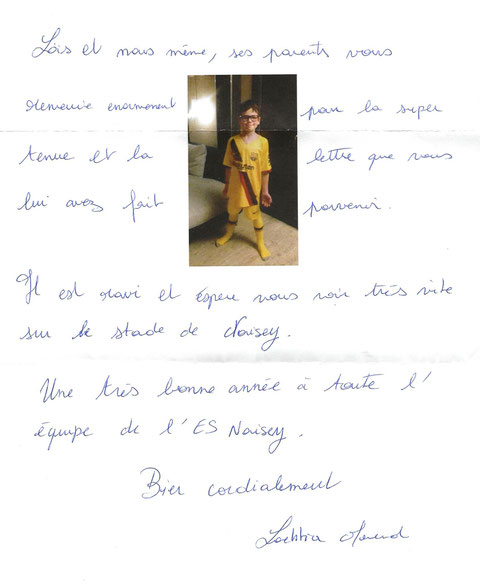 Loïs et nous même, ses parents vous
remercie enormement pour la super
tenue et la lettre que vous
lui avez fait parvenir.
Il est ravi et espère vous voir très vite
sur le stade de Naisey.
Une très bonne année à toute l'
équipe de l'ES Naisey.
Bien cordialement
Laetitia